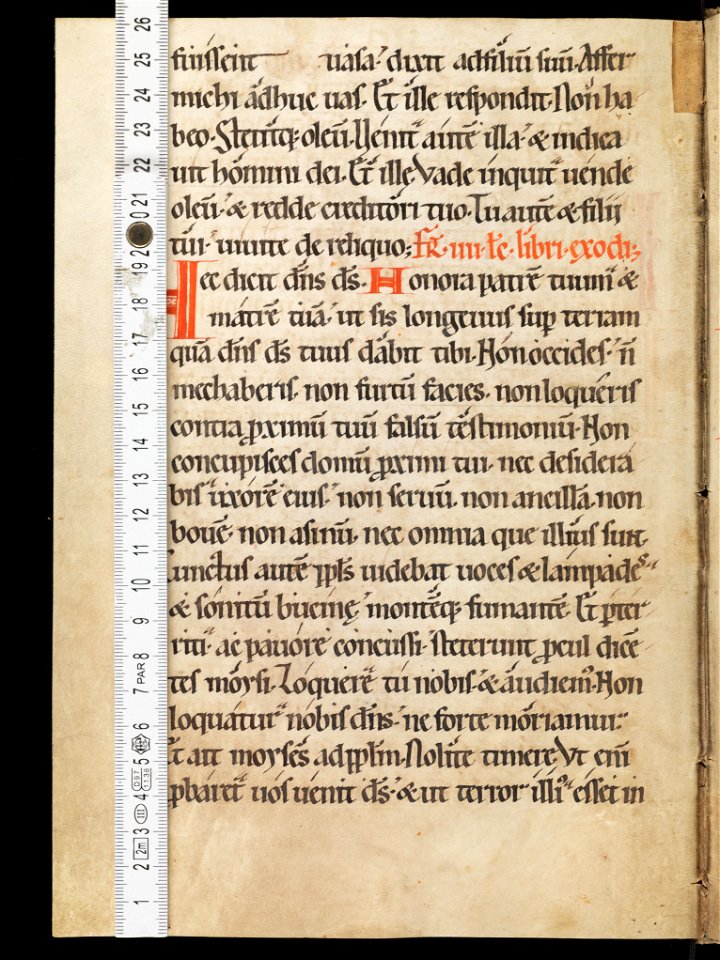 fuissent uasa. dixit adfiliū suū. Affer
michi adhuc uas. Et ille respondit. Non ha
beo. Stetitq; oleū. Uenit autē illa. & indica
uit homini dei. Et ille. Vade inquit uende
oleū. & redde creditori tuo. Tu autē & filii
tui. uiuite de reliquo; Fr̄. iiii. lc̄. libri. exodi;
Hec dicit dn̄s ds̄. Honora patrē tuum. &
matrē tuā. ut sis longeuus sup terram
quā dn̄s ds̄ tuus dabit tibi. Non occides. n̄
mechaberis. non furtū facies. non loqueris
contra ꝓximū tuū falsū testimoniū. Non
concupisces domū ꝓximi tui. nec desidera
bis uxorē eius. non seruū. non ancillā. non
bouē. non asinū. nec omnia que illius sunt.
Cunctus autē ppl̄s uidebat uoces & lampades.
& sonitū bucinę. montēq; fumantē. Et ꝑter
riti. ac pauore concussi. steterunt ꝓcul dicē
tes moysi. Loquere tu nobis. & audiem᷒. Non
loquatur nobis dn̄s. ne forte moriamur.
Et ait moyses ad ppl̄m. Nolite timere. Vt eni
ꝓbaret uos uenit ds̄. & ut terror illi᷒ esset in
1 2 3 4 5 6 7 8 9 10 11 12 13 14 15 16 17 18 19 20 21 22 23 24 25 26
2m III D97 11.36 PAR